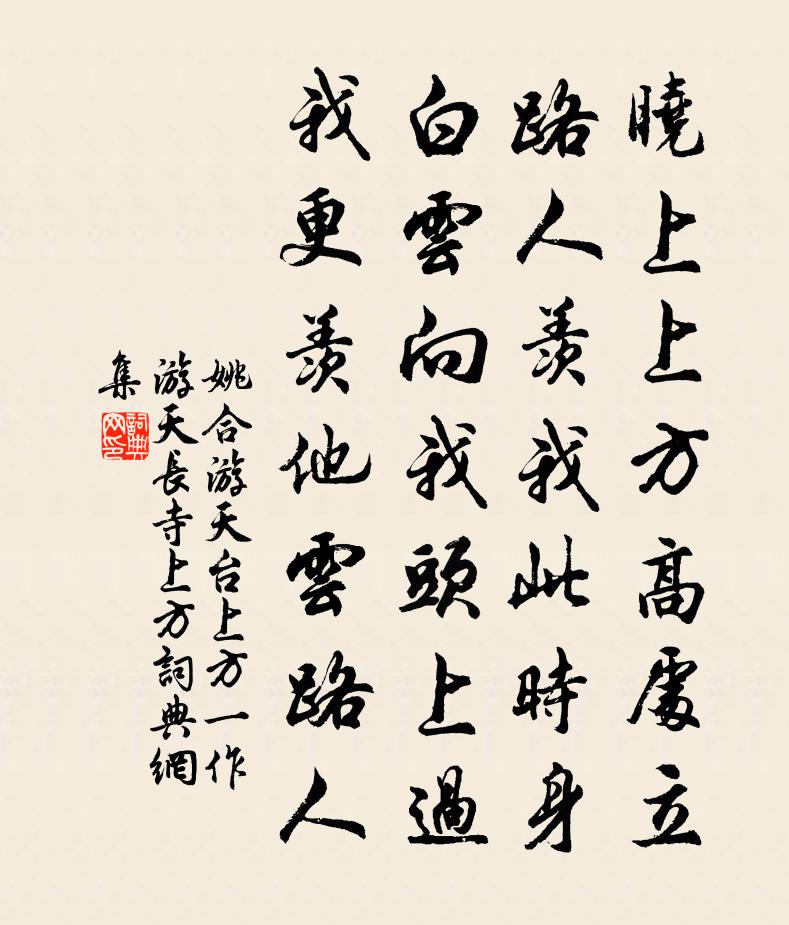 曉上上方高處立
路人羨我此時身
白雲向我頭上過
我更羨他雲路人
姚合游天台上方一作
游天長寺上方詞典網
集
詞典网印